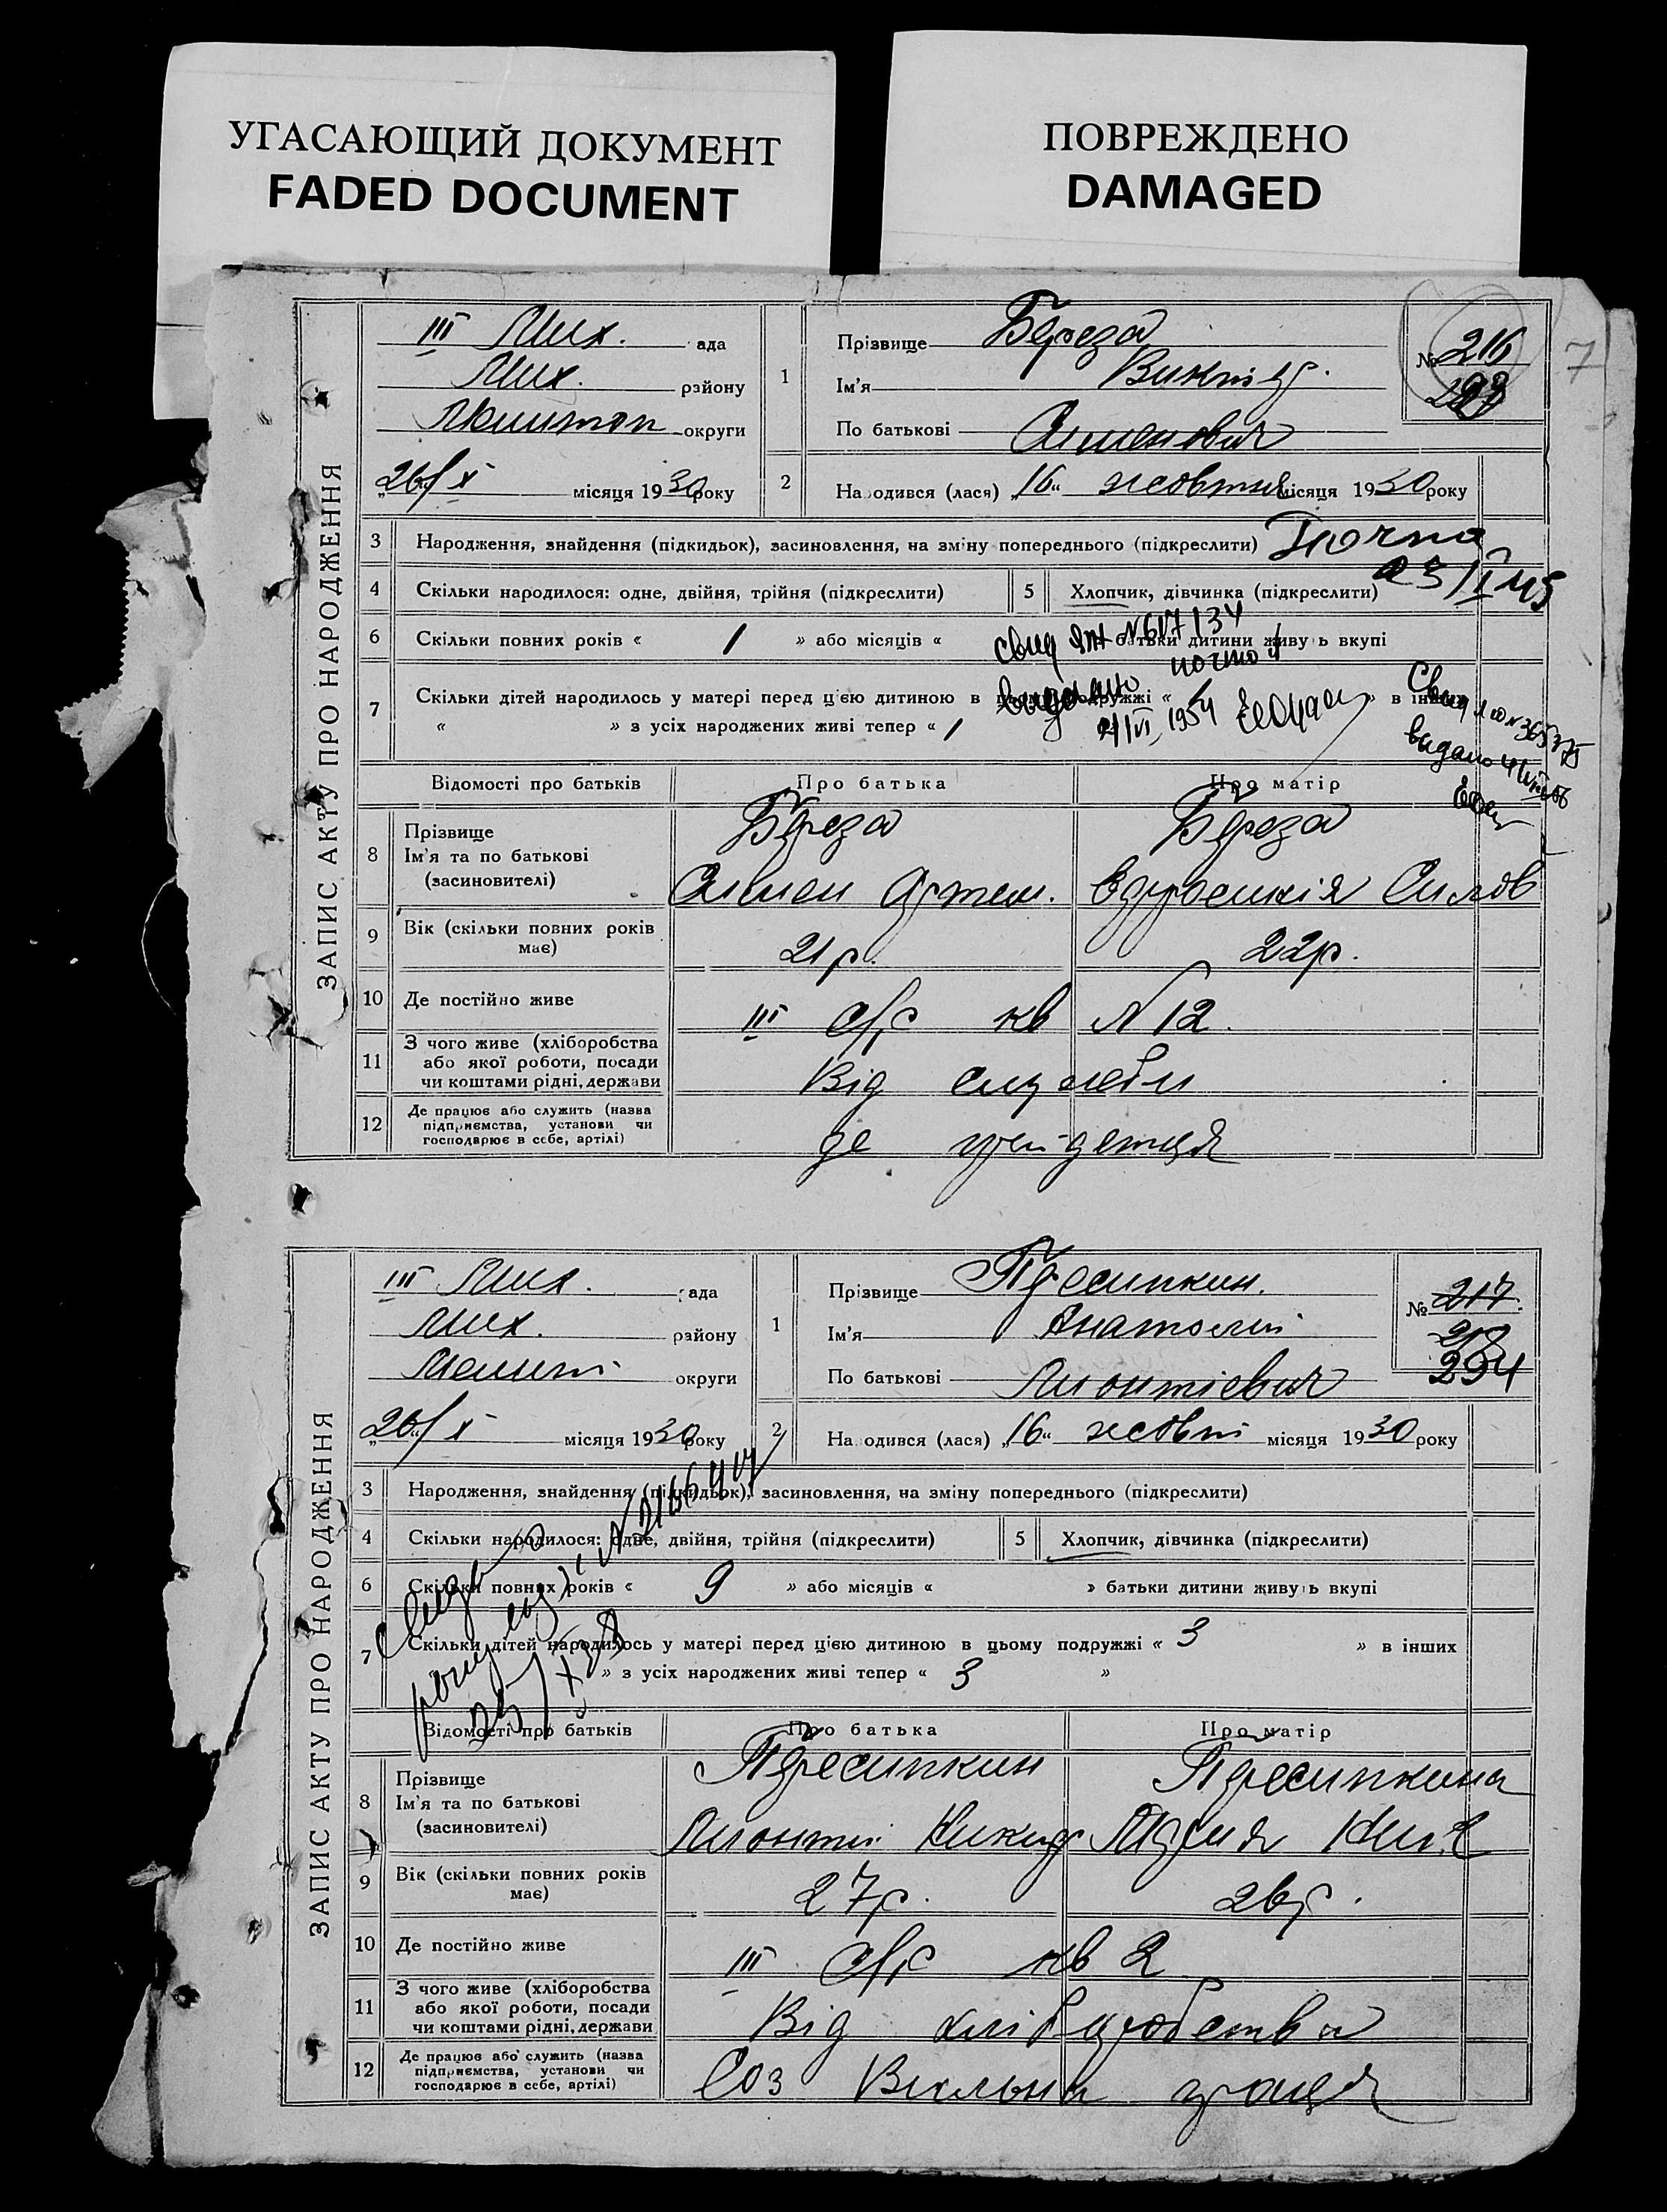 УГАСАЮЩИЙ ДОКУМЕНТ
FADED DOCUMENT
ПОВРЕЖДЕНО
DAMAGED
7
ЗАПИС АКТУ ПРО НАРОДЖЕННЯ
III Мих. ада
Мих. району
округи
„26“/X місяця 1930 року
1 Прізвище Береза
Ім'я Виктор.
По батькові Сименович
№ 216
2 На одився (лася) „16“ жовтня місяця 1930 року
3 Народження, знайдення (підкидьок), засиновлення, на зміну попереднього (підкреслити)
4 Скільки народилося: одне, двійня, трійня (підкреслити) 5 Хлопчик, дівчинка (підкреслити)
6 Скільки повних років « 1 » або місяців « батьки дитини живуть вкупі
свид ЯЖ N 617134
почтой
7 Скільки дітей народилось у матері перед цією дитиною в цьому подружжі « » в інших
« » з усіх народжених живі тепер « 1
видано
21/VI 1954
Свид
видано
Відомості про батьків Про батька Про матір
8 Прізвище
Ім'я та по батькові
(засиновителі)
Береза Береза
Симен Артем. Силов
9 Вік (скільки повних років має) 21 р. 22р.
10 Де постійно живе III с/р кв N 12.
11 З чого живе (хліборобства або якої роботи, посади чи коштами рідні, держави Від служби
12 Де працює або служить (назва підприємства, установи чи господарює в себе, артілі) де прийдеться
ЗАПИС АКТУ ПРО НАРОДЖЕННЯ
III Мих. ада
Мих. району
Мелит округи
„26“/X місяця 1930 року
1 Прізвище Пересипкин.
Ім'я Анатолий
По батькові Лионтієвич
№ 217.
294
2 На одився (лася) „16“ жовт місяця 1930 року
3 Народження, знайдення (підкидьок), засиновлення, на зміну попереднього (підкреслити)
4 Скільки народилося: одне, двійня, трійня (підкреслити) 5 Хлопчик, дівчинка (підкреслити)
6 Скільки повних років « 9 » або місяців « » батьки дитини живуть вкупі
7 Скільки дітей народилось у матері перед цією дитиною в цьому подружжі « 3 » в інших
» з усіх народжених живі тепер « 3 »
Відомості про батьків Про батька Про матір
8 Прізвище
Ім'я та по батькові
(засиновителі)
Пересипкин Пересипкина
Лионтий Никиф Мария
9 Вік (скільки повних років має) 27р. 26р.
10 Де постійно живе III с/р кв 2
11 З чого живе (хліборобства або якої роботи, посади чи коштами рідні, держави Від хліборобства
12 Де працює або служить (назва підприємства, установи чи господарює в себе, артілі) Соз Вильна праця